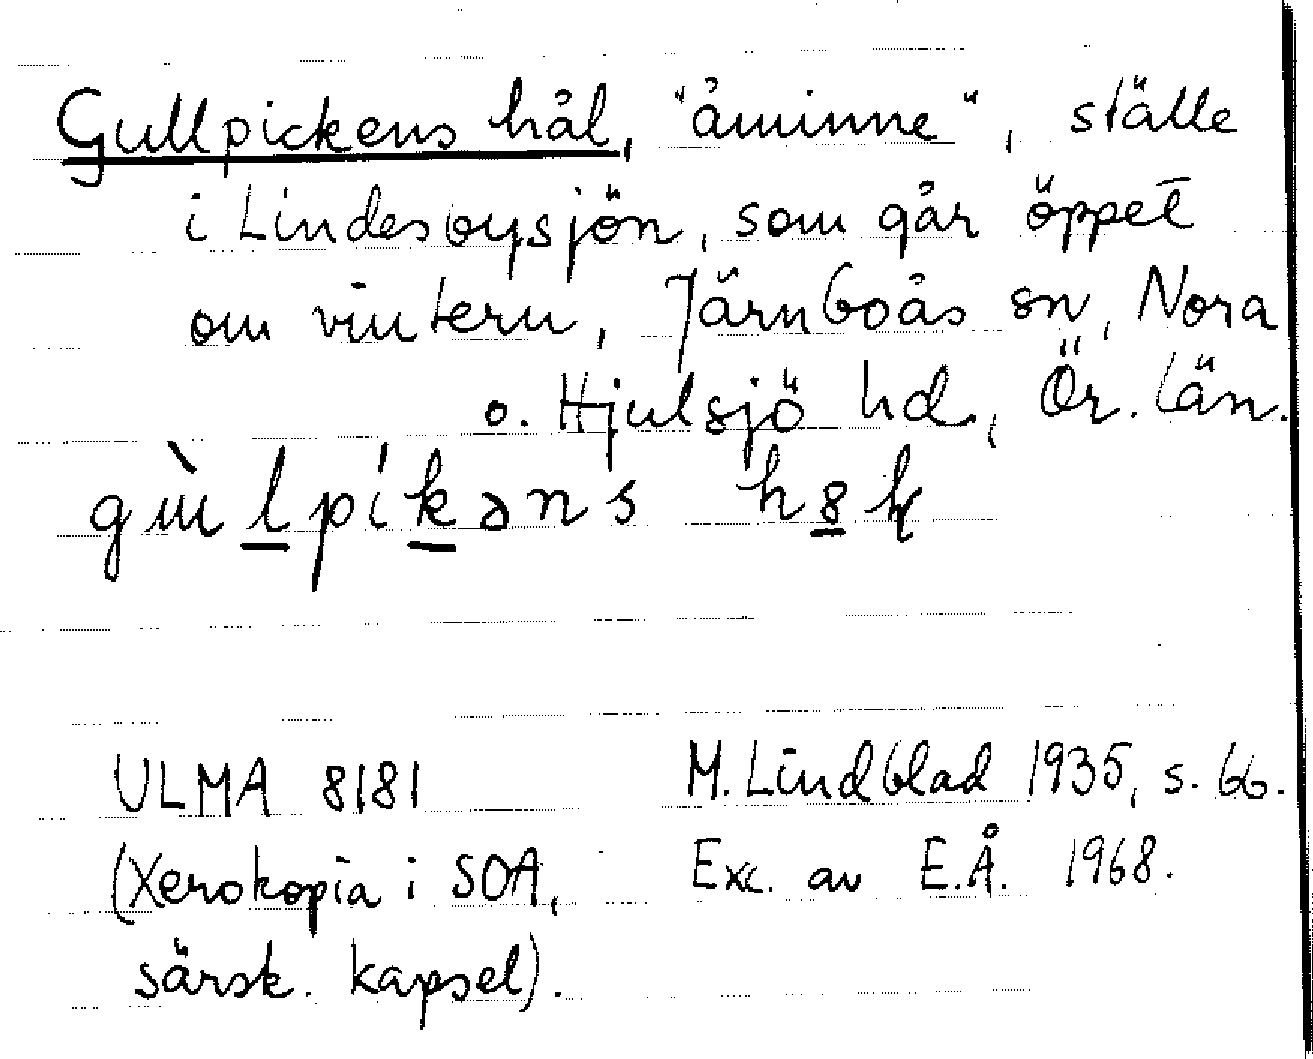 Gullpickens hål, "åminne", ställe
i Lindesbysjön, som går öppet
om vintern, Järnboås sn, Nora
o. Hjulsjö hd, Ör. län.
ULMA 8181 M. Lindblad 1935, s. 66.
(Xerokopia i SOA, Exc. av E.Å. 1968.
särsk. kapsel).